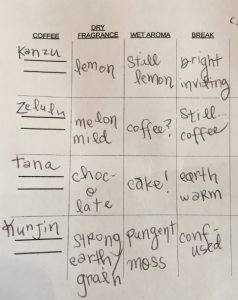 COFFEE DRY FRAGRANCE WET AROMA BREAK
Kanzu
lemon
Still lemon
bright inviting
Zelulu
melon mild
coffee?
Still... coffee
tana
choc-
o
late
cake!
earth warm
Kunjin
strong earthy grain
pungent moss
conf-
used